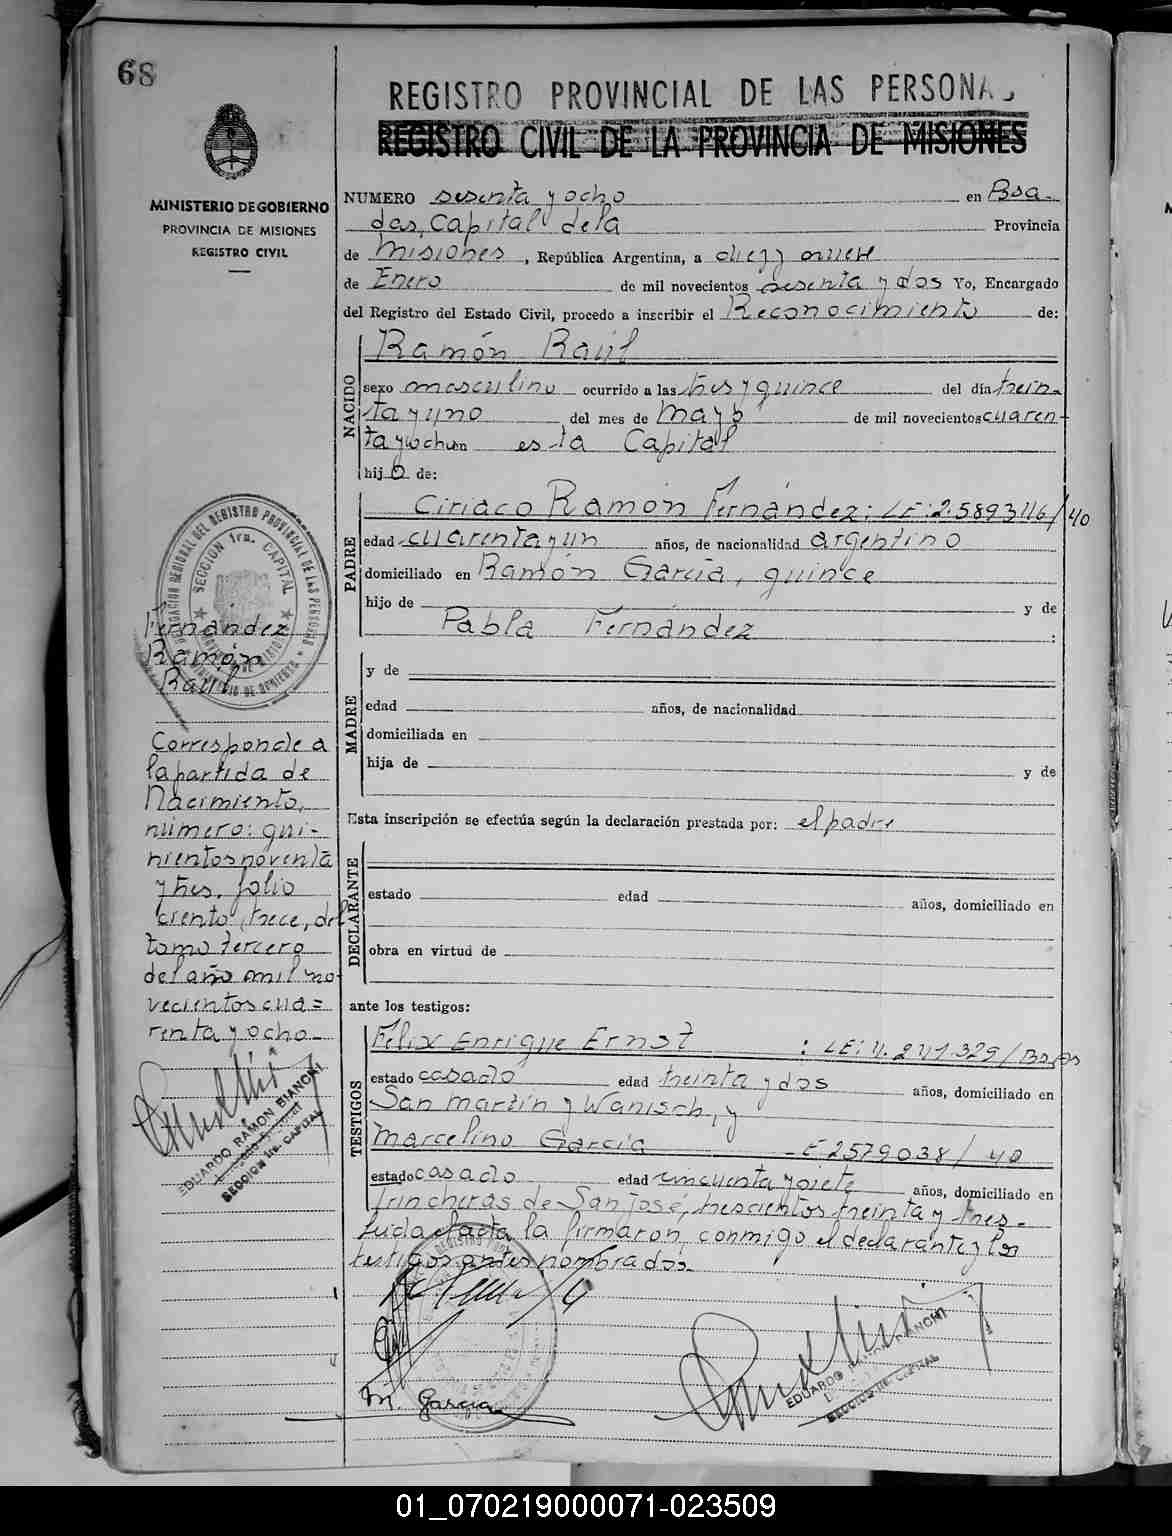 68
REGISTRO PROVINCIAL DE LAS PERSONAS
REGISTRO CIVIL DE LA PROVINCIA DE MISIONES
MINISTERIO DE GOBIERNO
PROVINCIA DE MISIONES
REGISTRO CIVIL
NUMERO sesenta y ocho en Posa-
das, Capital de la Provincia
de Misiones, República Argentina, a diez y nueve
de Enero de mil novecientos sesenta y dos Yo, Encargado
del Registro del Estado Civil, procedo a inscribir el Reconocimiento de:
NACIDO
Ramón Raúl
sexo masculino ocurrido a las tres y quince del día trein-
ta y uno del mes de Mayo de mil novecientos cuaren-
ta y ocho en esta Capital
hijo de:
PADRE
Ciriaco Ramón Fernández: LE: 2.589346/40
edad cuarenta y un años, de nacionalidad argentino
domiciliado en Ramón García, quince
hijo de y de
Pabla Fernández :
MADRE
y de
edad años, de nacionalidad
domiciliada en
hija de y de
Esta inscripción se efectúa según la declaración prestada por: el padre
DECLARANTE
estado edad años, domiciliado en
obra en virtud de
ante los testigos:
TESTIGOS
Félix Enrique Ernst : LE: 4.241.329/
estado casado edad treinta y dos años, domiciliado en
San Martín y Wanisch, y
Marcelino García E 2579038/40
estado casado edad cincuenta y siete años, domiciliado en
Trincheras de San José, trescientos treinta y tres-
Leida el acta la firmaron, conmigo el declarante y los
testigos antes nombrados.
M. Garcia
EDUARDO RAMON BIANCHI
SECCION 1ra. CAPITAL
DELEGACION REGIONAL DEL REGISTRO PROVINCIAL DE LAS PERSONAS
SECCION 1ra. CAPITAL
Fernández
Ramón
Raúl
Corresponde a
la partida de
Nacimiento,
número: qui-
nientos noventa
y tres, folio
ciento trece, del
tomo tercero
del año mil no-
vecientos cua=
renta y ocho.
EDUARDO RAMON BIANCHI
SECCION 1ra. CAPITAL
01_070219000071-023509